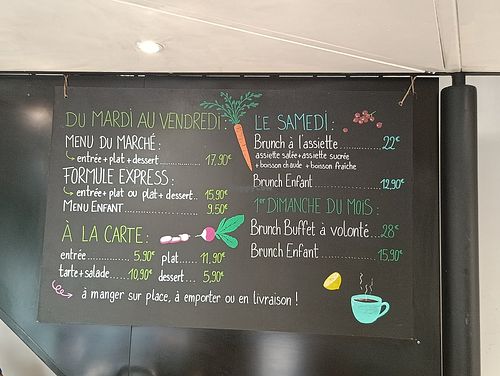 DU MARDI AU VENDREDI :
MENU DU MARCHÉ :
entrée + plat + dessert............... 17,90€
FORMULE EXPRESS :
entrée + plat ou plat + dessert.. 15,90€
MENU ENFANT.................... 9,50€
À LA CARTE :
entrée............... 5,90€ plat...... 11,90€
tarte + salade.....10,90€ dessert.... 5,90€
à manger sur place, à emporter ou en livraison !
LE SAMEDI :
Brunch à l'assiette...........22€
assiette salée + assiette sucrée
+ boisson chaude + boisson fraîche
Brunch Enfant ................. 12,90€
1er DIMANCHE DU MOIS :
Brunch Buffet à volonté...28€
Brunch Enfant .............. 15,90€